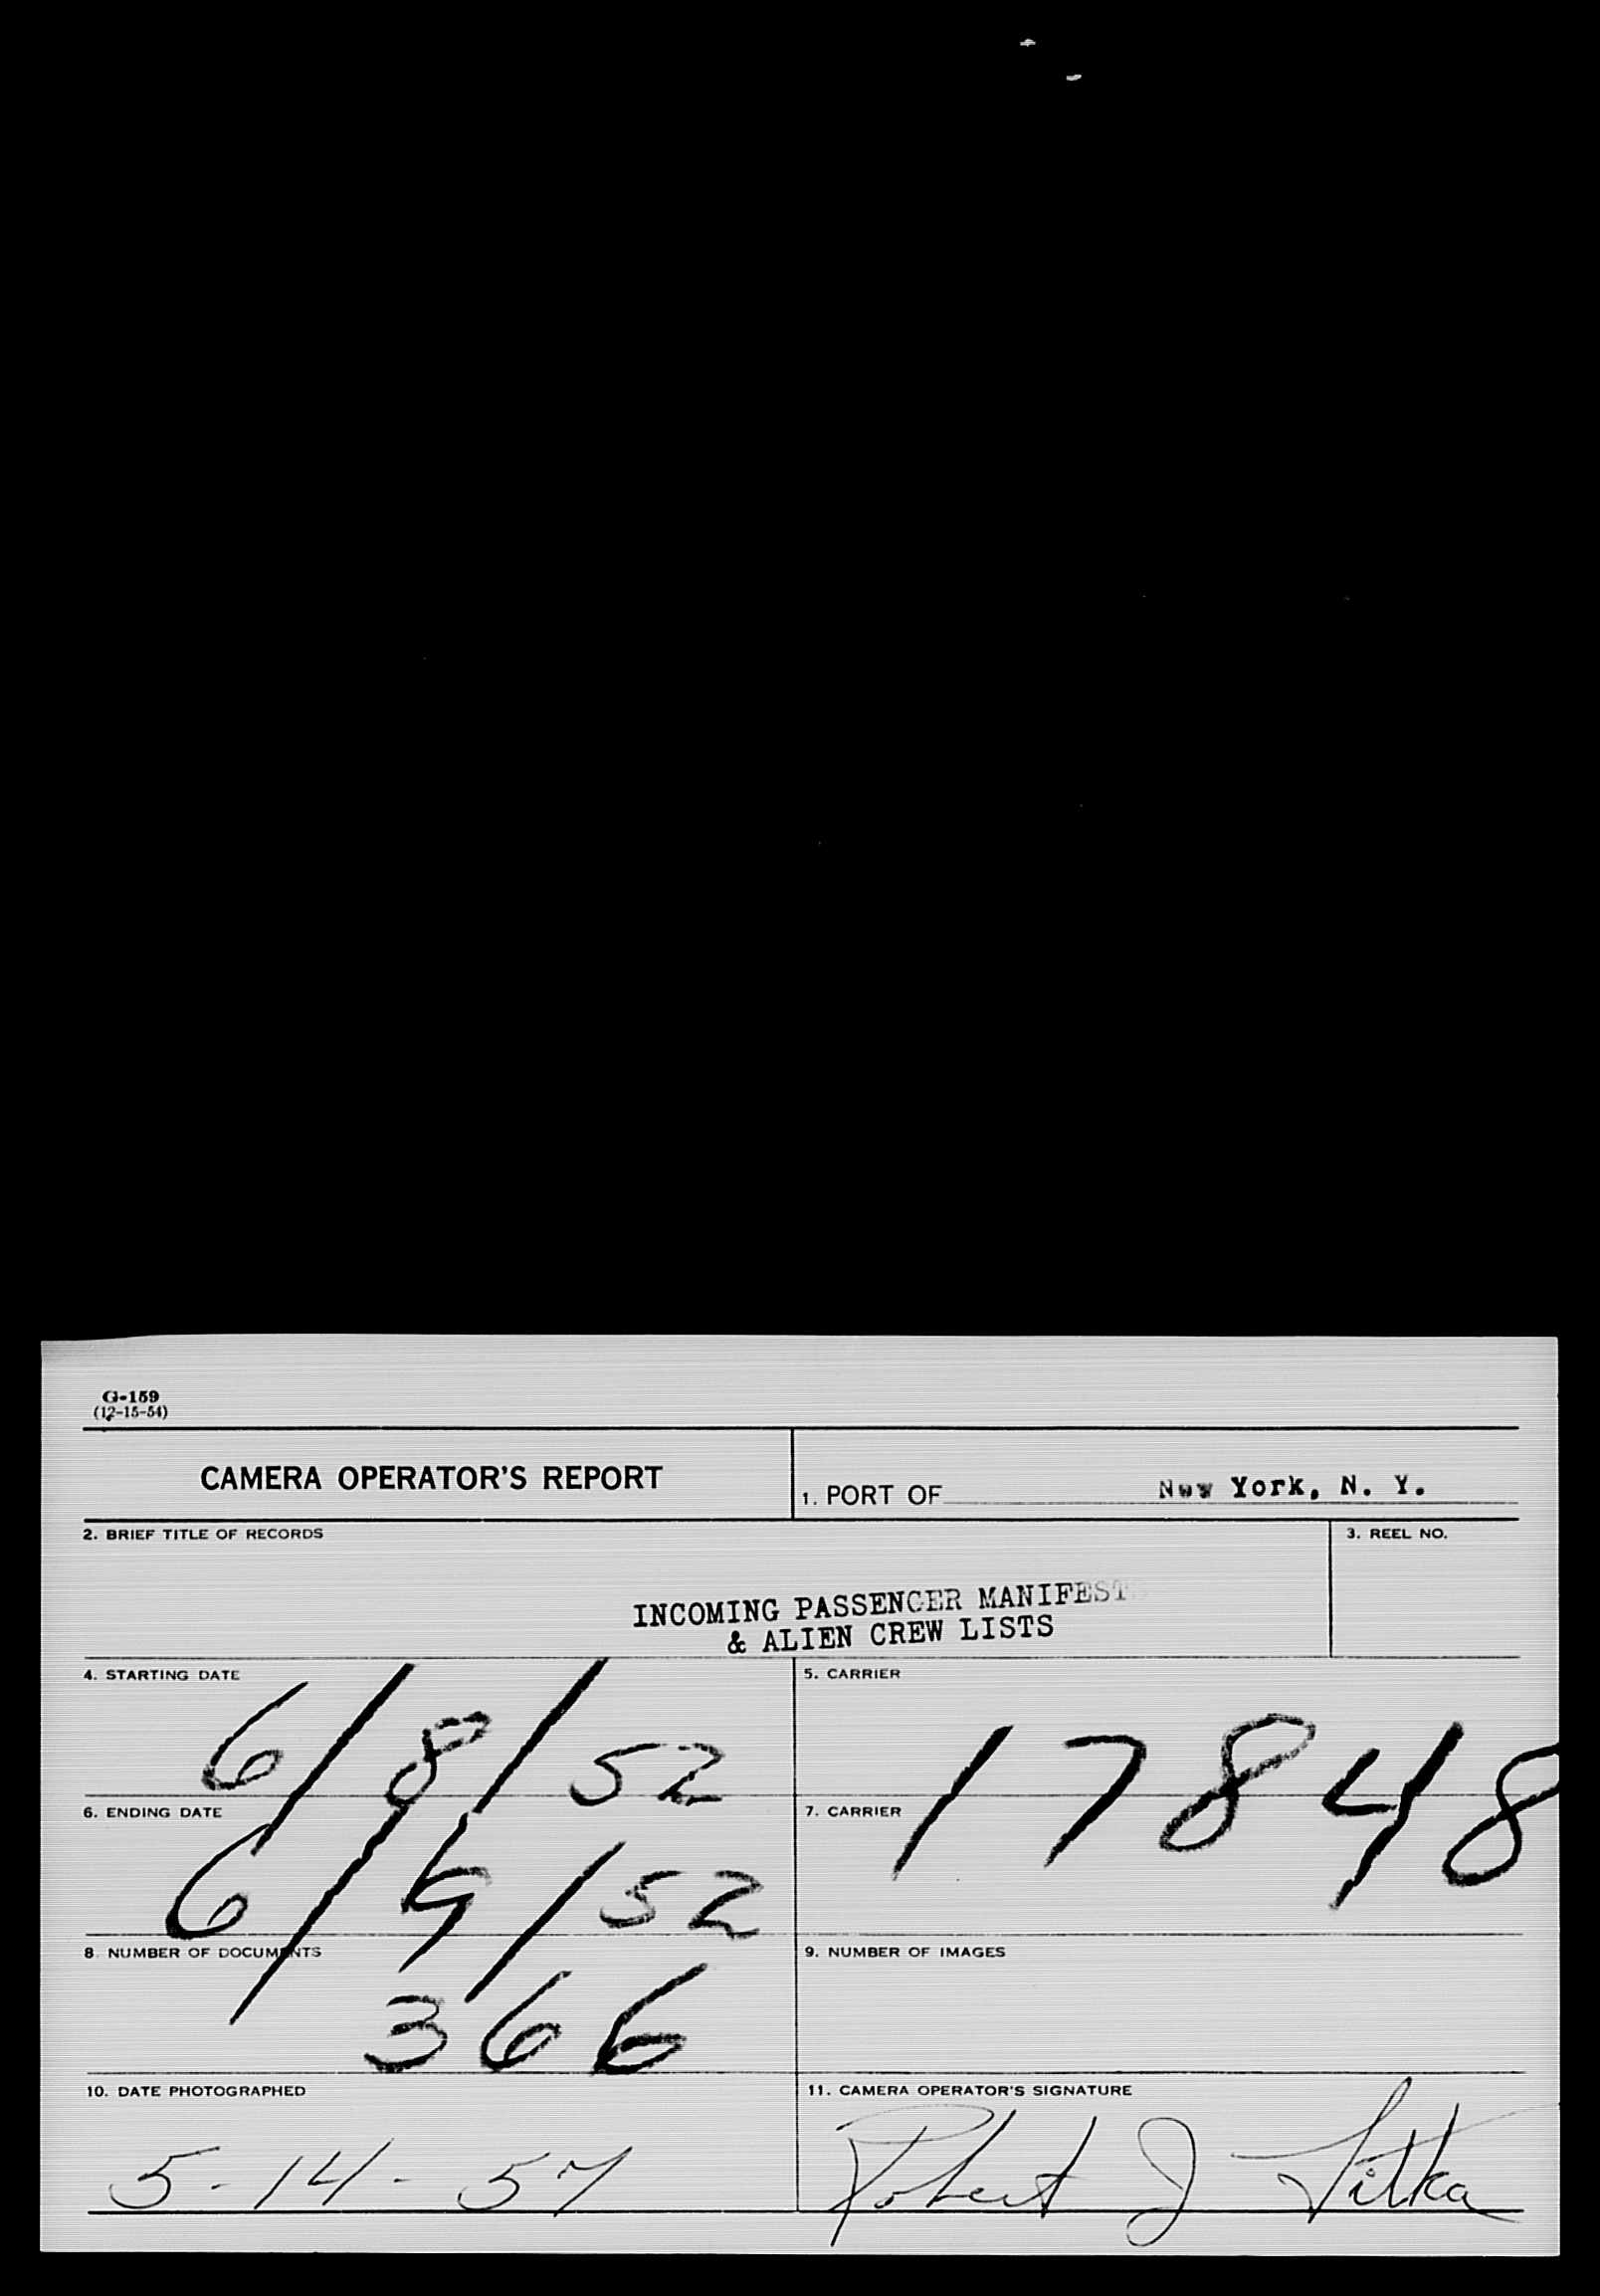 G-159
(12-15-54)
CAMERA OPERATOR'S REPORT
1. PORT OF New York, N. Y.
2. BRIEF TITLE OF RECORDS
3. REEL NO.
INCOMING PASSENGER MANIFEST
& ALIEN CREW LISTS
4. STARTING DATE
6/8/52
5. CARRIER
17848
6. ENDING DATE
6/ /52
7. CARRIER
8. NUMBER OF DOCUMENTS
366
9. NUMBER OF IMAGES
10. DATE PHOTOGRAPHED
5-14-57
11. CAMERA OPERATOR'S SIGNATURE
Robert J